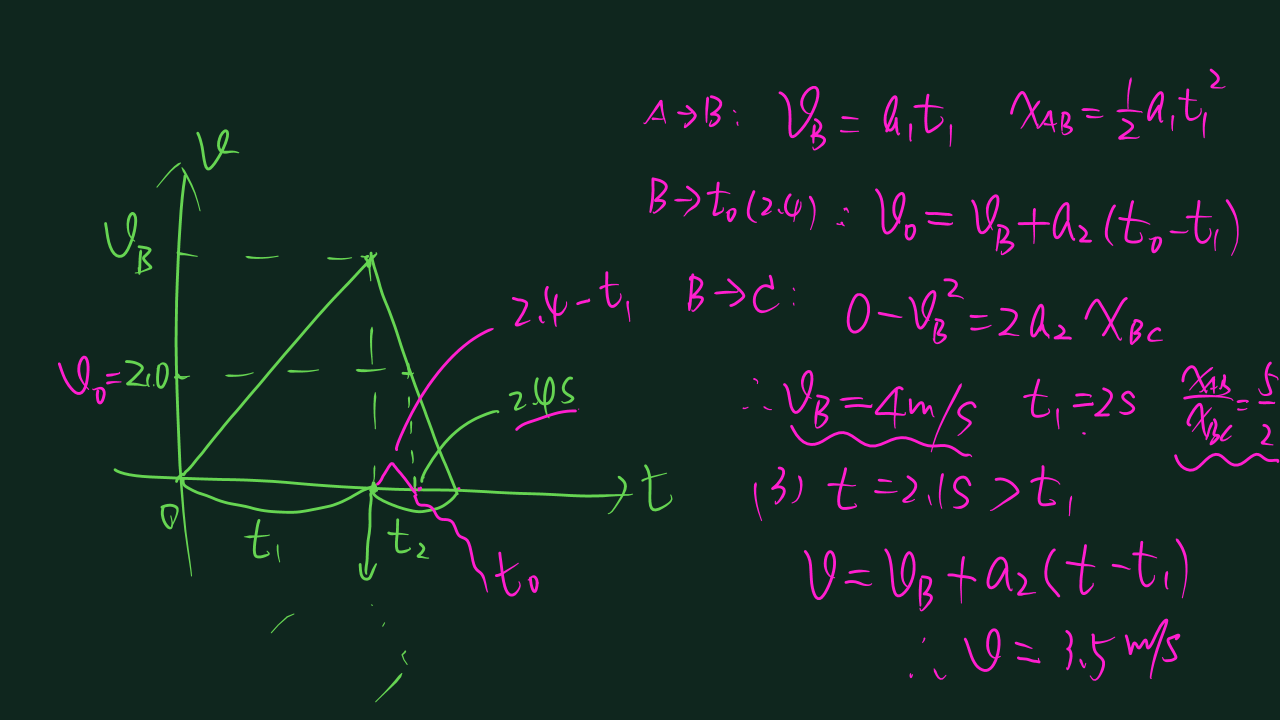 v
v_B
v₀=2.0
0
t₁
t₂
t₀
t
2.4-t₁
2.4s
A→B: v_B = a₁t₁ x_AB = ½a₁t₁²
B→t₀(2.4): v₀ = v_B+a₂(t₀-t₁)
B→C: 0-v_B² = 2a₂x_BC
∴ v_B = 4m/s t₁ = 2s x_AB/x_BC = 5/2
(3) t = 2.1s > t₁
v = v_B + a₂(t-t₁)
∴ v = 3.5 m/s